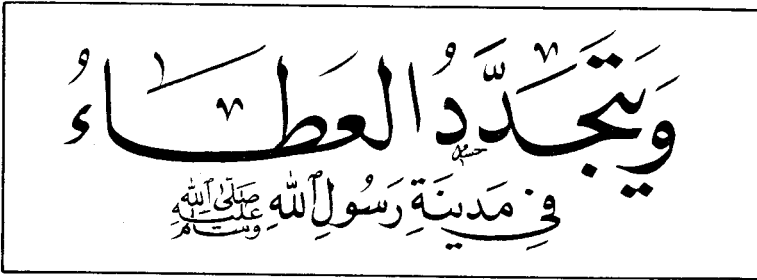 وَيَتَجَدَّدُ الْعَطَاءُ
فِي مَدِينَةِ رَسُولِ ٱللهِ صَلَّى ٱللهُ عَلَيْهِ وَسَلَّمَ